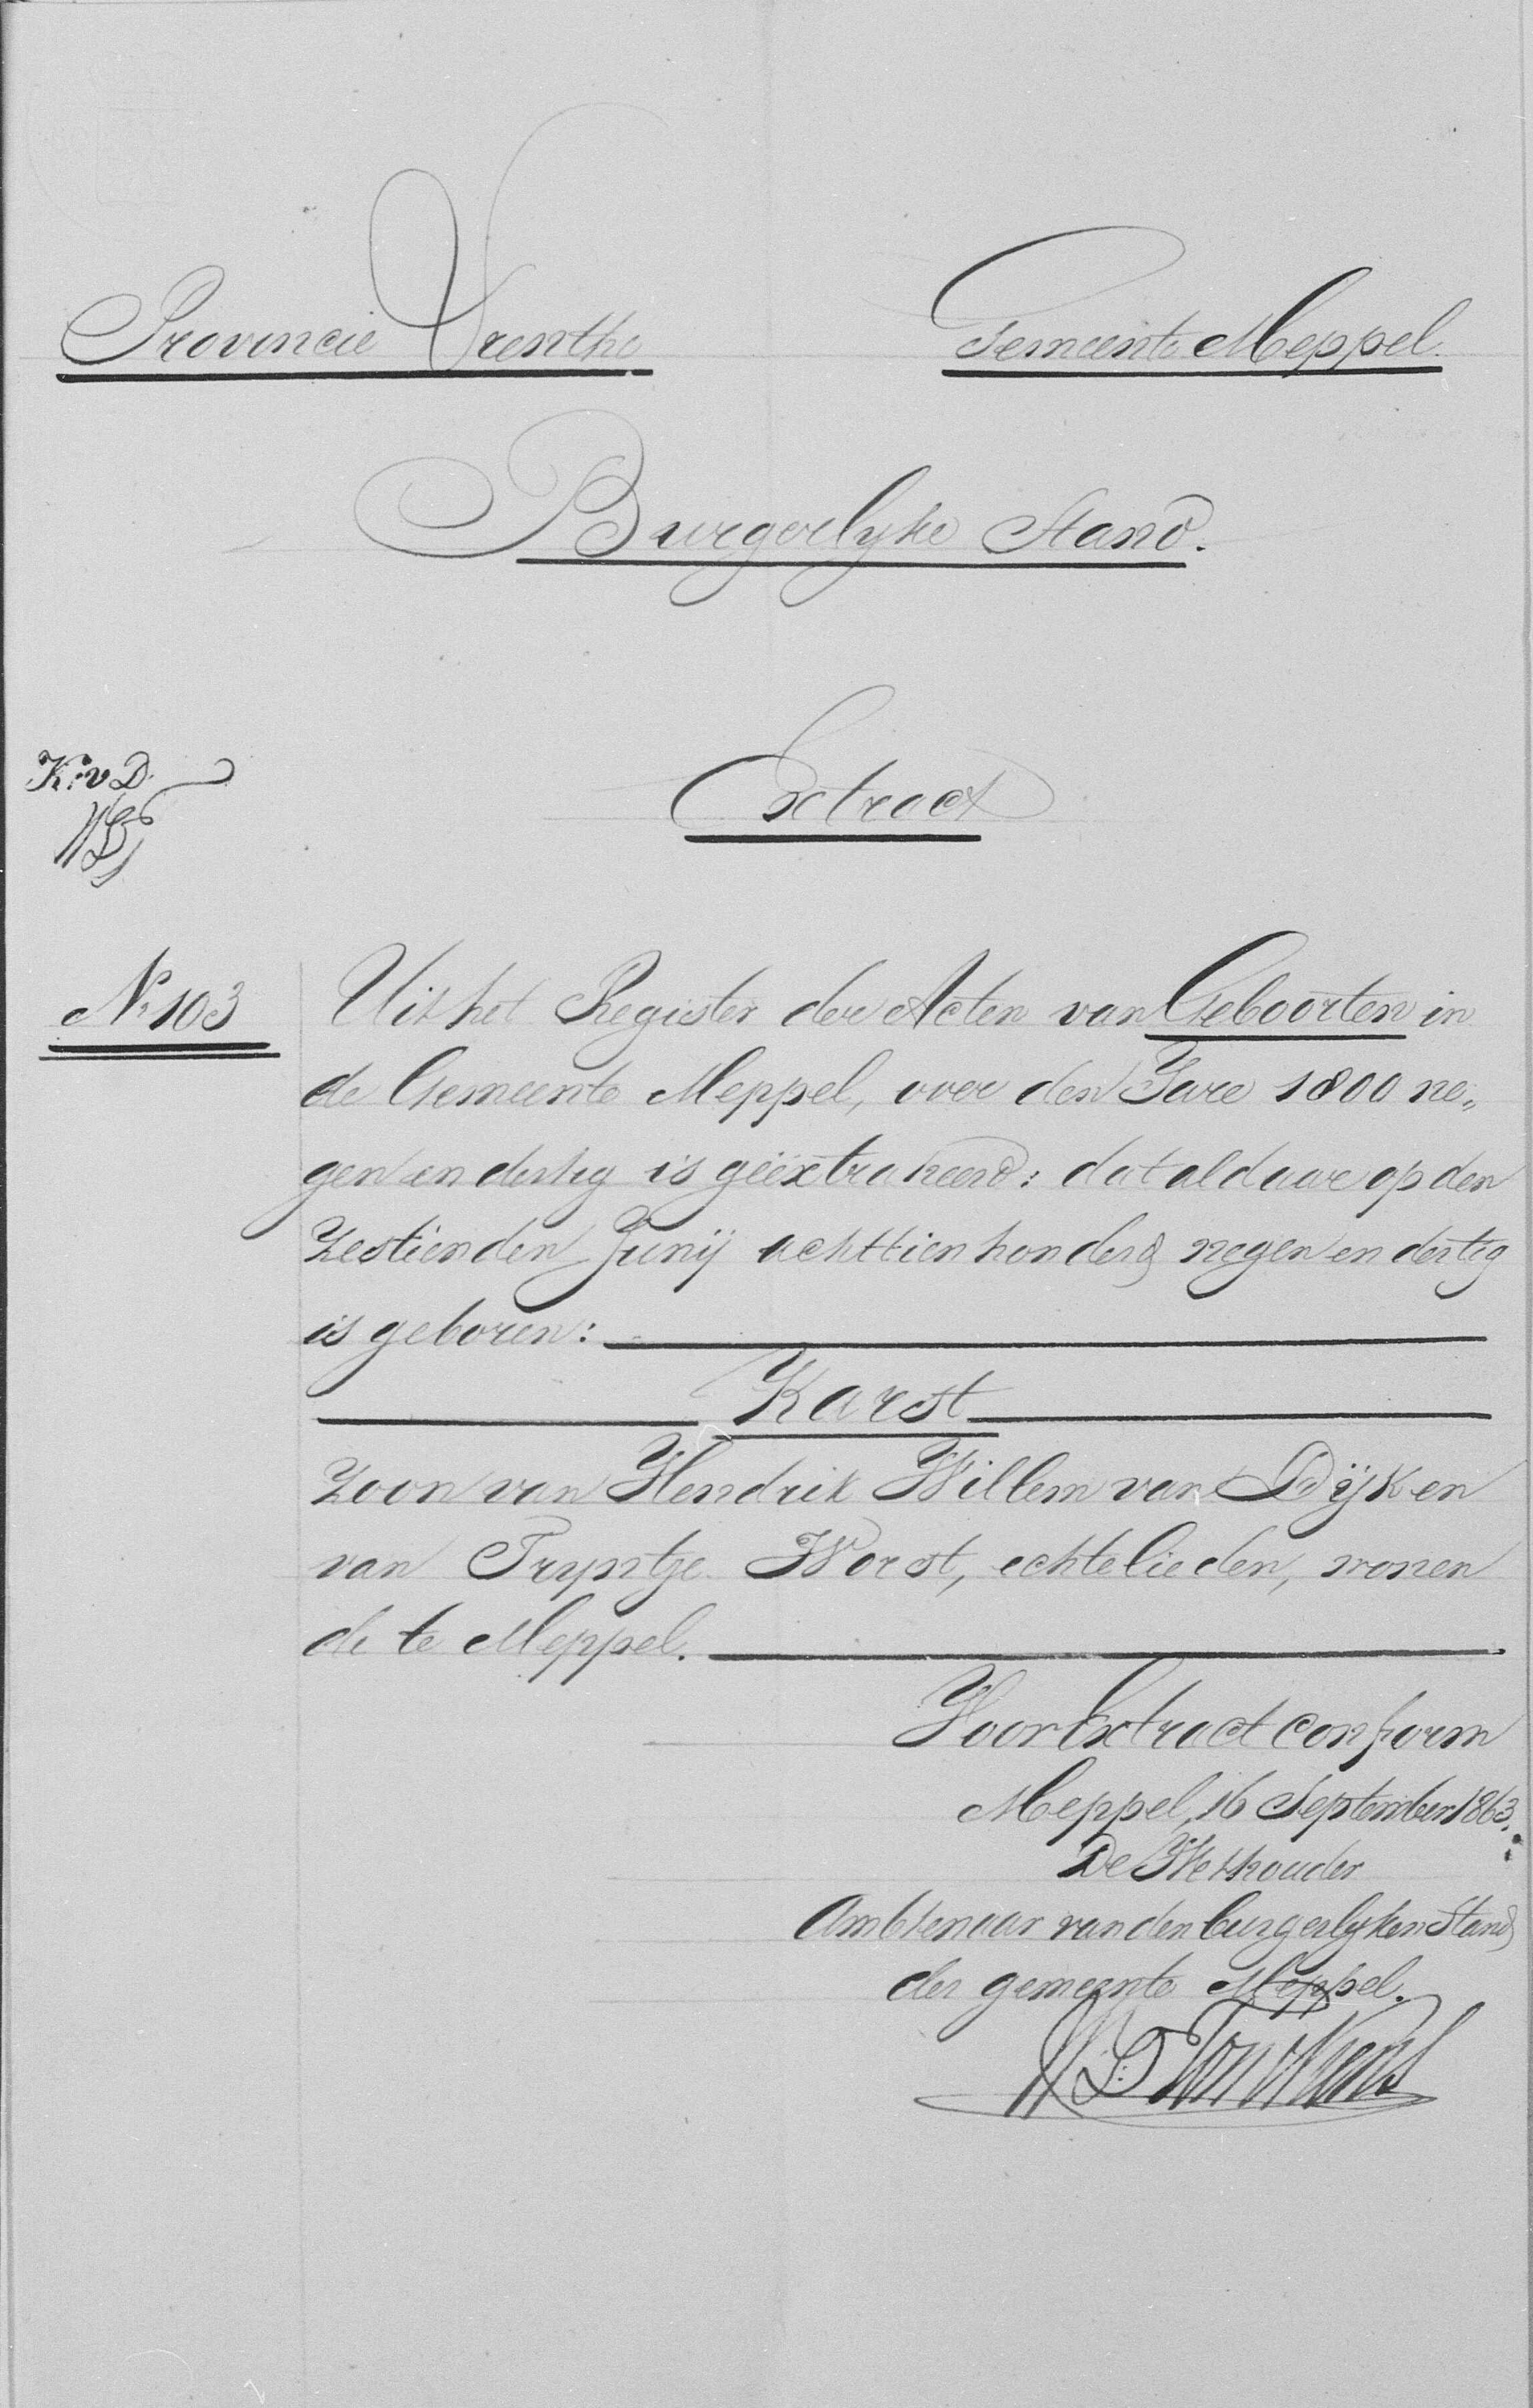 Provincie Drenthe
Gemeente Meppel.
Burgerlyke Stand.
K. v D.
Extract
No 103
Uit het Register der Acten van Geboorten in
de Gemeente Meppel, over den Jare 1800 ne„
gen en dertig is geëxtraheerd: dat aldaar op den
Zestienden Junij achttien honderd negen en dertig
is geboren:
Karst
Zoon van Hendrik Willem van Dijk en
van Tryntje Worst, echtelieden, wonen
de te Meppel.
Voor Extract conform
Meppel, 16 September 1863.
De Wethouder
Ambtenaar van den burgerlyken Stand
der gemeente Meppel.